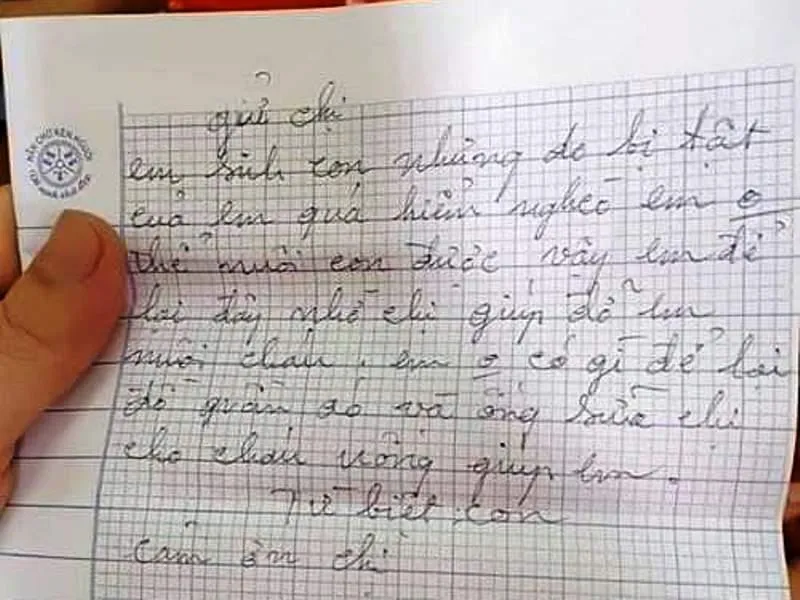 gửi chị
em sinh con nhưng do bị tật
của em quá hiểm nghèo em o
thể nuôi con được vây em để
lại đây nhờ chị giúp đỡ em
nuôi cháu, em o có gì để lại
đồ quần áo và ống sữa chị
cho cháu uống giúp em.
Từ biệt con
cảm ơn chị
NÉT CHỮ NẾT NGƯỜI